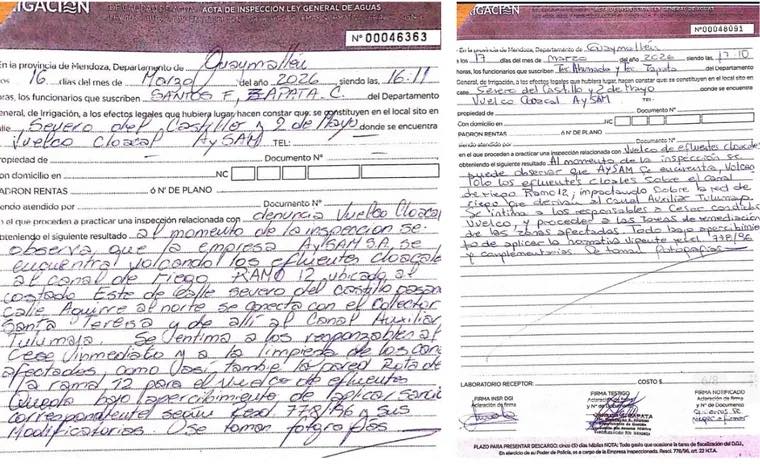 IGACIÓN
ACTA DE INSPECCION LEY GENERAL DE AGUAS
Nº 00046363
En la provincia de Mendoza, Departamento de Guaymallén
los 16 días del mes de Marzo del año 2026 siendo las, 16:11
horas, los funcionarios que suscriben SANTOS F, ZAPATA. C. del Departamento
General, de Irrigación, a los efectos legales que hubiera lugar, hacen constar que, se constituyen en el local sito en
calle, Severo del Castillo y 2 de Mayo donde se encuentra
Vuelco Cloacal AySAM TEL:
propiedad de Documento Nº
Con domicilio en NC
PADRON RENTAS ó Nº DE PLANO
siendo atendido por Documento Nº
en el que proceden a practicar una inspección relacionada con denuncia Vuelco Cloacal
obteniendo el siguiente resultado al momento de la inspección se
observa que la empresa AySAM SA, se
encuentra volcando los efluentes cloacales
al canal de riego RAMO 12, ubicado al
costado Este de calle severo del Castillo pasando
calle Aguirre al norte se conecta con el Colector
Santa Teresa y de allí al Canal Auxiliar
Tulumaya. Se intima a los responsables al
Cese inmediato y a la limpieza de los
afectados, como así, tambie la pared Rota de
la rama 12 para el Vuelco de efluentes
Queda bajo apercibimiento de aplicar
correspondiente según resol 778/96 y sus
Modificatorias. se toman fotografías
IGACIÓN
ACTA DE INSPECCION LEY GENERAL DE AGUAS
Nº 00048091
En la provincia de Mendoza, Departamento de Guaymallén
a los 17 días del mes de marzo del año 2026 siendo las, 17:10
horas, los funcionarios que suscriben Tec Ahumada y Tec Zapata del Departamento
General, de Irrigación, a los efectos legales que hubiera lugar, hacen constar que se constituyen en el local sito en
calle Severo del Castillo y 2 de Mayo donde se encuentra
Vuelco Cloacal AySAM TEL:
propiedad de Documento Nº
Con domicilio en NC
PADRON RENTAS ó Nº DE PLANO
siendo atendido por Documento Nº
en el que proceden a practicar una inspección relacionada con Vuelco de efluentes cloacales
obteniendo el siguiente resultado Al momento de la inspección se
puede observar que AySAM se encuentra, Volcan
los efluentes cloacales sobre el canal
de riego Ramo 12, impactando sobre la red de
riego que deriva al canal Auxiliar Tulumaya.
Se intima a los responsables a Cesar
Vuelco, y proceder a las tareas de remediación
de las zonas afectadas. Todo bajo apercibimien
to de aplicar la normativa vigente resol. 778/96
y complementarias. Se toman fotografías
LABORATORIO RECEPTOR: COSTO $
FIRMA INSP. DGI
Aclaración de firma
FIRMA TESTIGO
Aclaración de firma
y Nº de Documento
FIRMA NOTIFICADO
Aclaración de firma
y Nº de Documento
PLAZO PARA PRESENTAR DESCARGO: cinco (5) días hábiles NOTA: Todo gasto que ocasione la tarea de fiscalización del D.G.I.
En ejercicio de su Poder de Policía, es a cargo de la Empresa Inspeccionada. Resol. 778/96, art. 22 H.T.A.